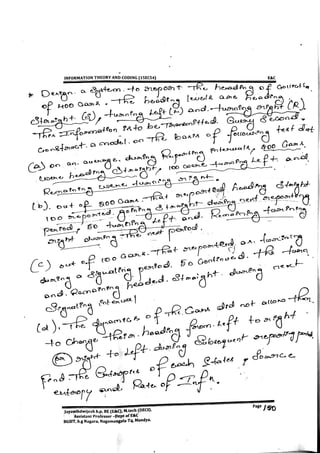 INFORMATION THEORY AND CODING (15EC54) E&C
* Design a system to report The heading of
of 400 Cars. The heading levels are heading
Straight (S), turning Left (L) and turning right (R).
This Information is to be Transmitted. Every Second.
Construct a model on The basis of following test data
(a) on an average, during Reporting Intervals, 200 Cars
were heading Straight, 100 were turning Left and
Remaining were turning right.
(b). out of 200 Cars That reported heading Straight
100 reported going Straight during next reporting
Period, 50 turning Left and Remaining turning
right during The next period.
(c) out of 100 Cars That reported as turning
during a signaling period, 50 Continued The turn
and Remaining headed Straight during next
Signaling interval
(d). The dynamics of The Cars did not allow Them
to Change Their heading from Left to right
or right to Left during Subsequent reporting period.
Find The Entropy of each State, source
entropy and Rate of Infn.
Jayanthdwijesh h.p, BE (E&C), M.tech (DECS). Page 150
Assistant Professor -Dept of E&C
BGSIT, b.g Nagara, Nagamangala Tq, Mandya.